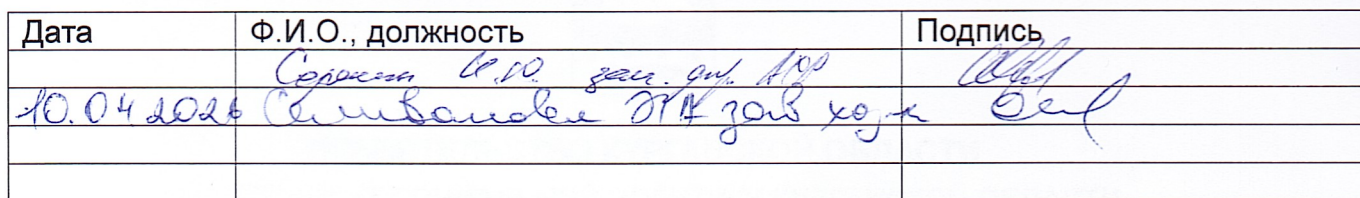 Дата Ф.И.О., должность Подпись
Сорокин И.Ю. зам. дир. АХР
10.04.2026 Селиванова зав хоз